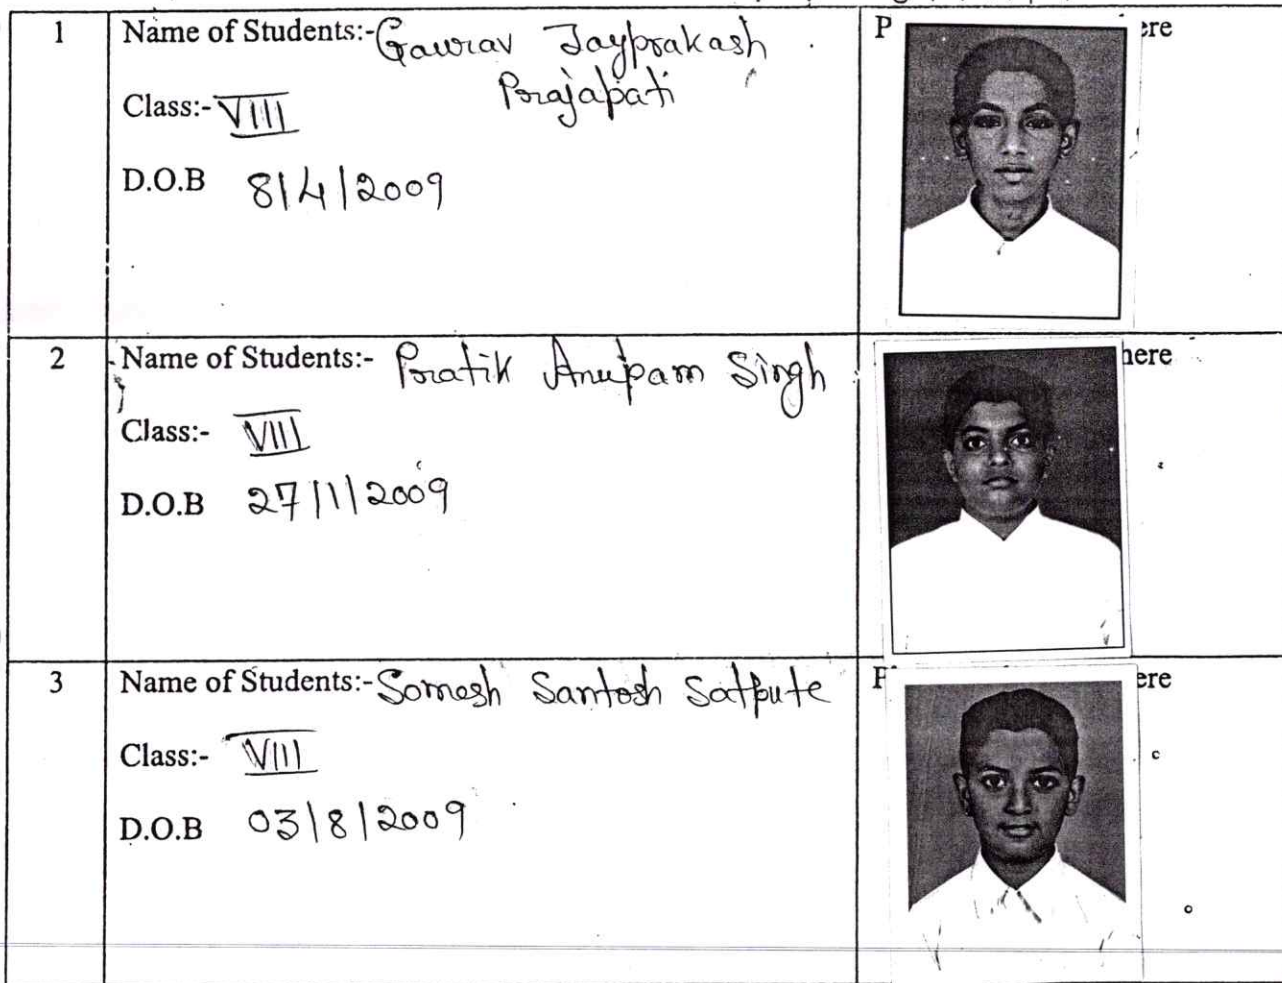 1
Name of Students:- Gaurav Jayprakash
Prajapati
Class:- VIII
D.O.B 8/4/2009
P ere
2
Name of Students:- Pratik Anupam Singh
Class:- VIII
D.O.B 27/1/2009
here
3
Name of Students:- Somesh Santosh Satpute
Class:- VIII
D.O.B 03/8/2009
P ere